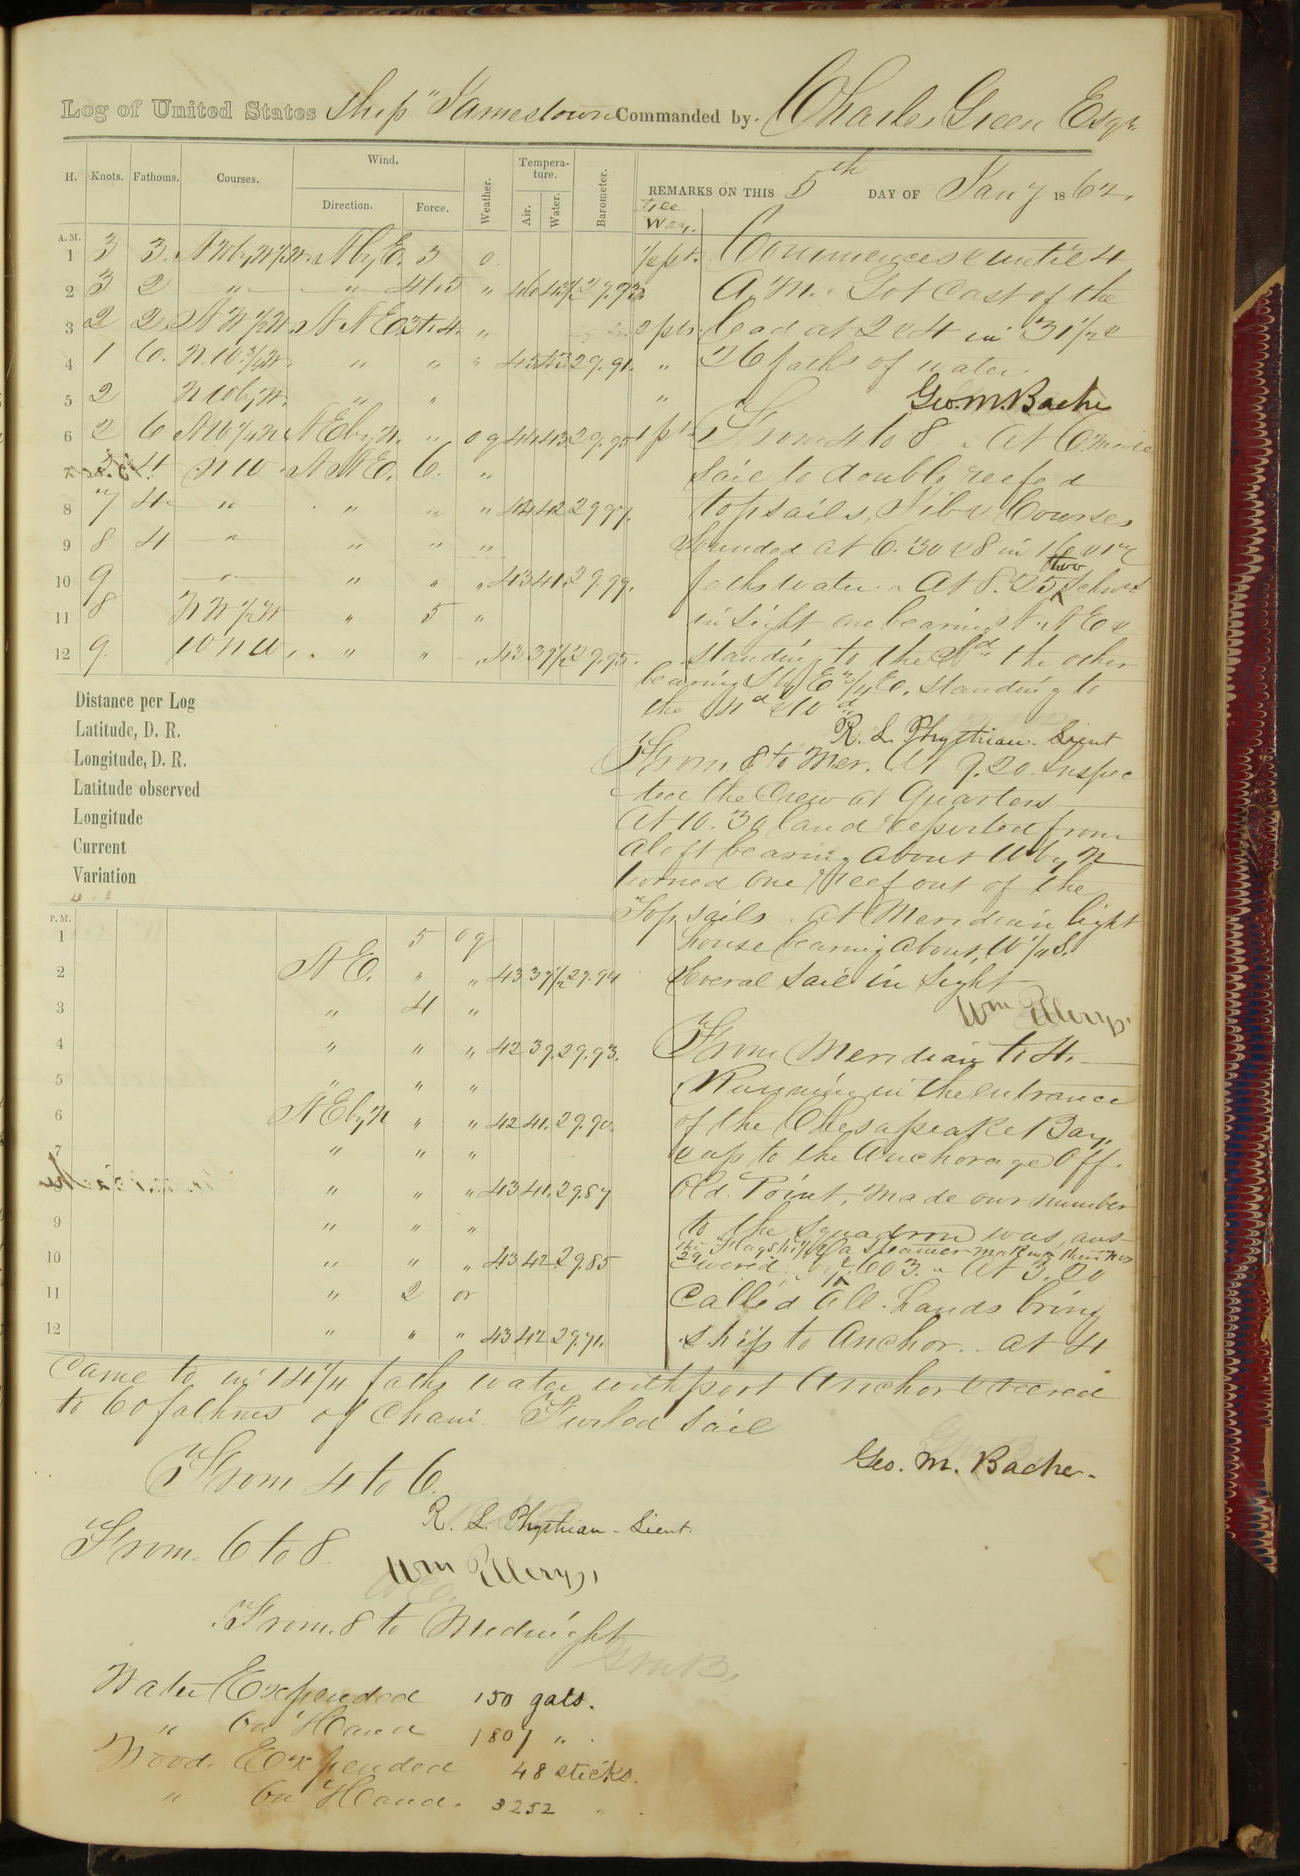 Log of United States Ship "Jamestown Commanded by. Charles Green Esqr
H. Knots. Fathoms. Courses. Wind. Direction. Force. Weather. Tempera-ture. Air. Water. Barometer. Lee Way. REMARKS ON THIS 5th DAY OF Jany 1862.
A. M.
1 3 3. NWbyW½W. NbyE. 3 o. ½pt. Commences & until 4
2 3 2 " " 4to5 " 46 43½ 29.93 A.M. Got Cast of the
3 2 2. NW½W. NNE 3to4. " 2 pts. lead at 2 & 4 in 31½ &
4 1 6. N.W.¾W. " " " 45 43 29.91. " 26 faths of water.
5 2 NWbyW. " " " Geo. M. Bache
6 2 6 NW¼W NEbyN. " og 44 43 29.95 1 pt. From 4 to 8. At 6 made
7 4. NW NNE. 6. " Sail to double reefed
8 7 4 " " " " 42 42 29.97. topsails, Jib & Courses
9 8 4 " " " " Sounded at 6.30 & 8 in 16 & 17
10 9 " " " " 43 41. 29.99. faths water. At 8.25 two Schrs
11 8 NW½W " 5 " in Sight one bearing N.NE &
12 9 WNW. " " " 43 39½ 29.95. standing to the Sd the other
bearing SbyE¾E. standing to
the Nd & Wd
R. L. Phythian. Lieut
From 8 to Mer. At 9.20 Inspec
-ted the Crew at Quarters
At 10.30 land reported from
aloft bearing about WbyN
turned One Reef out of the
Topsails. At Meridian light
house bearing about, W¼S.
Several Sail in Sight
Wm P. Clerys.
Distance per Log
Latitude, D. R.
Longitude, D. R.
Latitude observed
Longitude
Current
Variation
P. M.
1 5 og
2 NE. " " 43 39½ 29.94
3 " 4 "
4 " " " 42 39. 29.93. From Meridian to 4.
5 " " " Running in the entrance
6 NEbyN " " 42 41. 29.90. of the Chesapeake Bay,
7 " " " & up to the Anchorage Off.
8 " " " 43 41. 29.87 Old. Point, Made our number
9 " " " to the Squadron was ans
10 " " " 43 42 29.85 wered. At 3.20
11 " 2 or Called All. hands bring
12 " " " 43 42 29.71. ship to Anchor. at 4
Came to in 14¼ faths water with port Anchor & veered
to 60 fathms of Chain. Furled Sail
Geo. M. Bache.
From 4 to 6.
R. L. Phythian - Lieut.
From. 6 to 8.
From. 8 to Midnight
GMB.
Water Expended 150 gals.
" On Hand 1807 " .
Wood. Expended 48 sticks.
" On Hand. 3252 " .